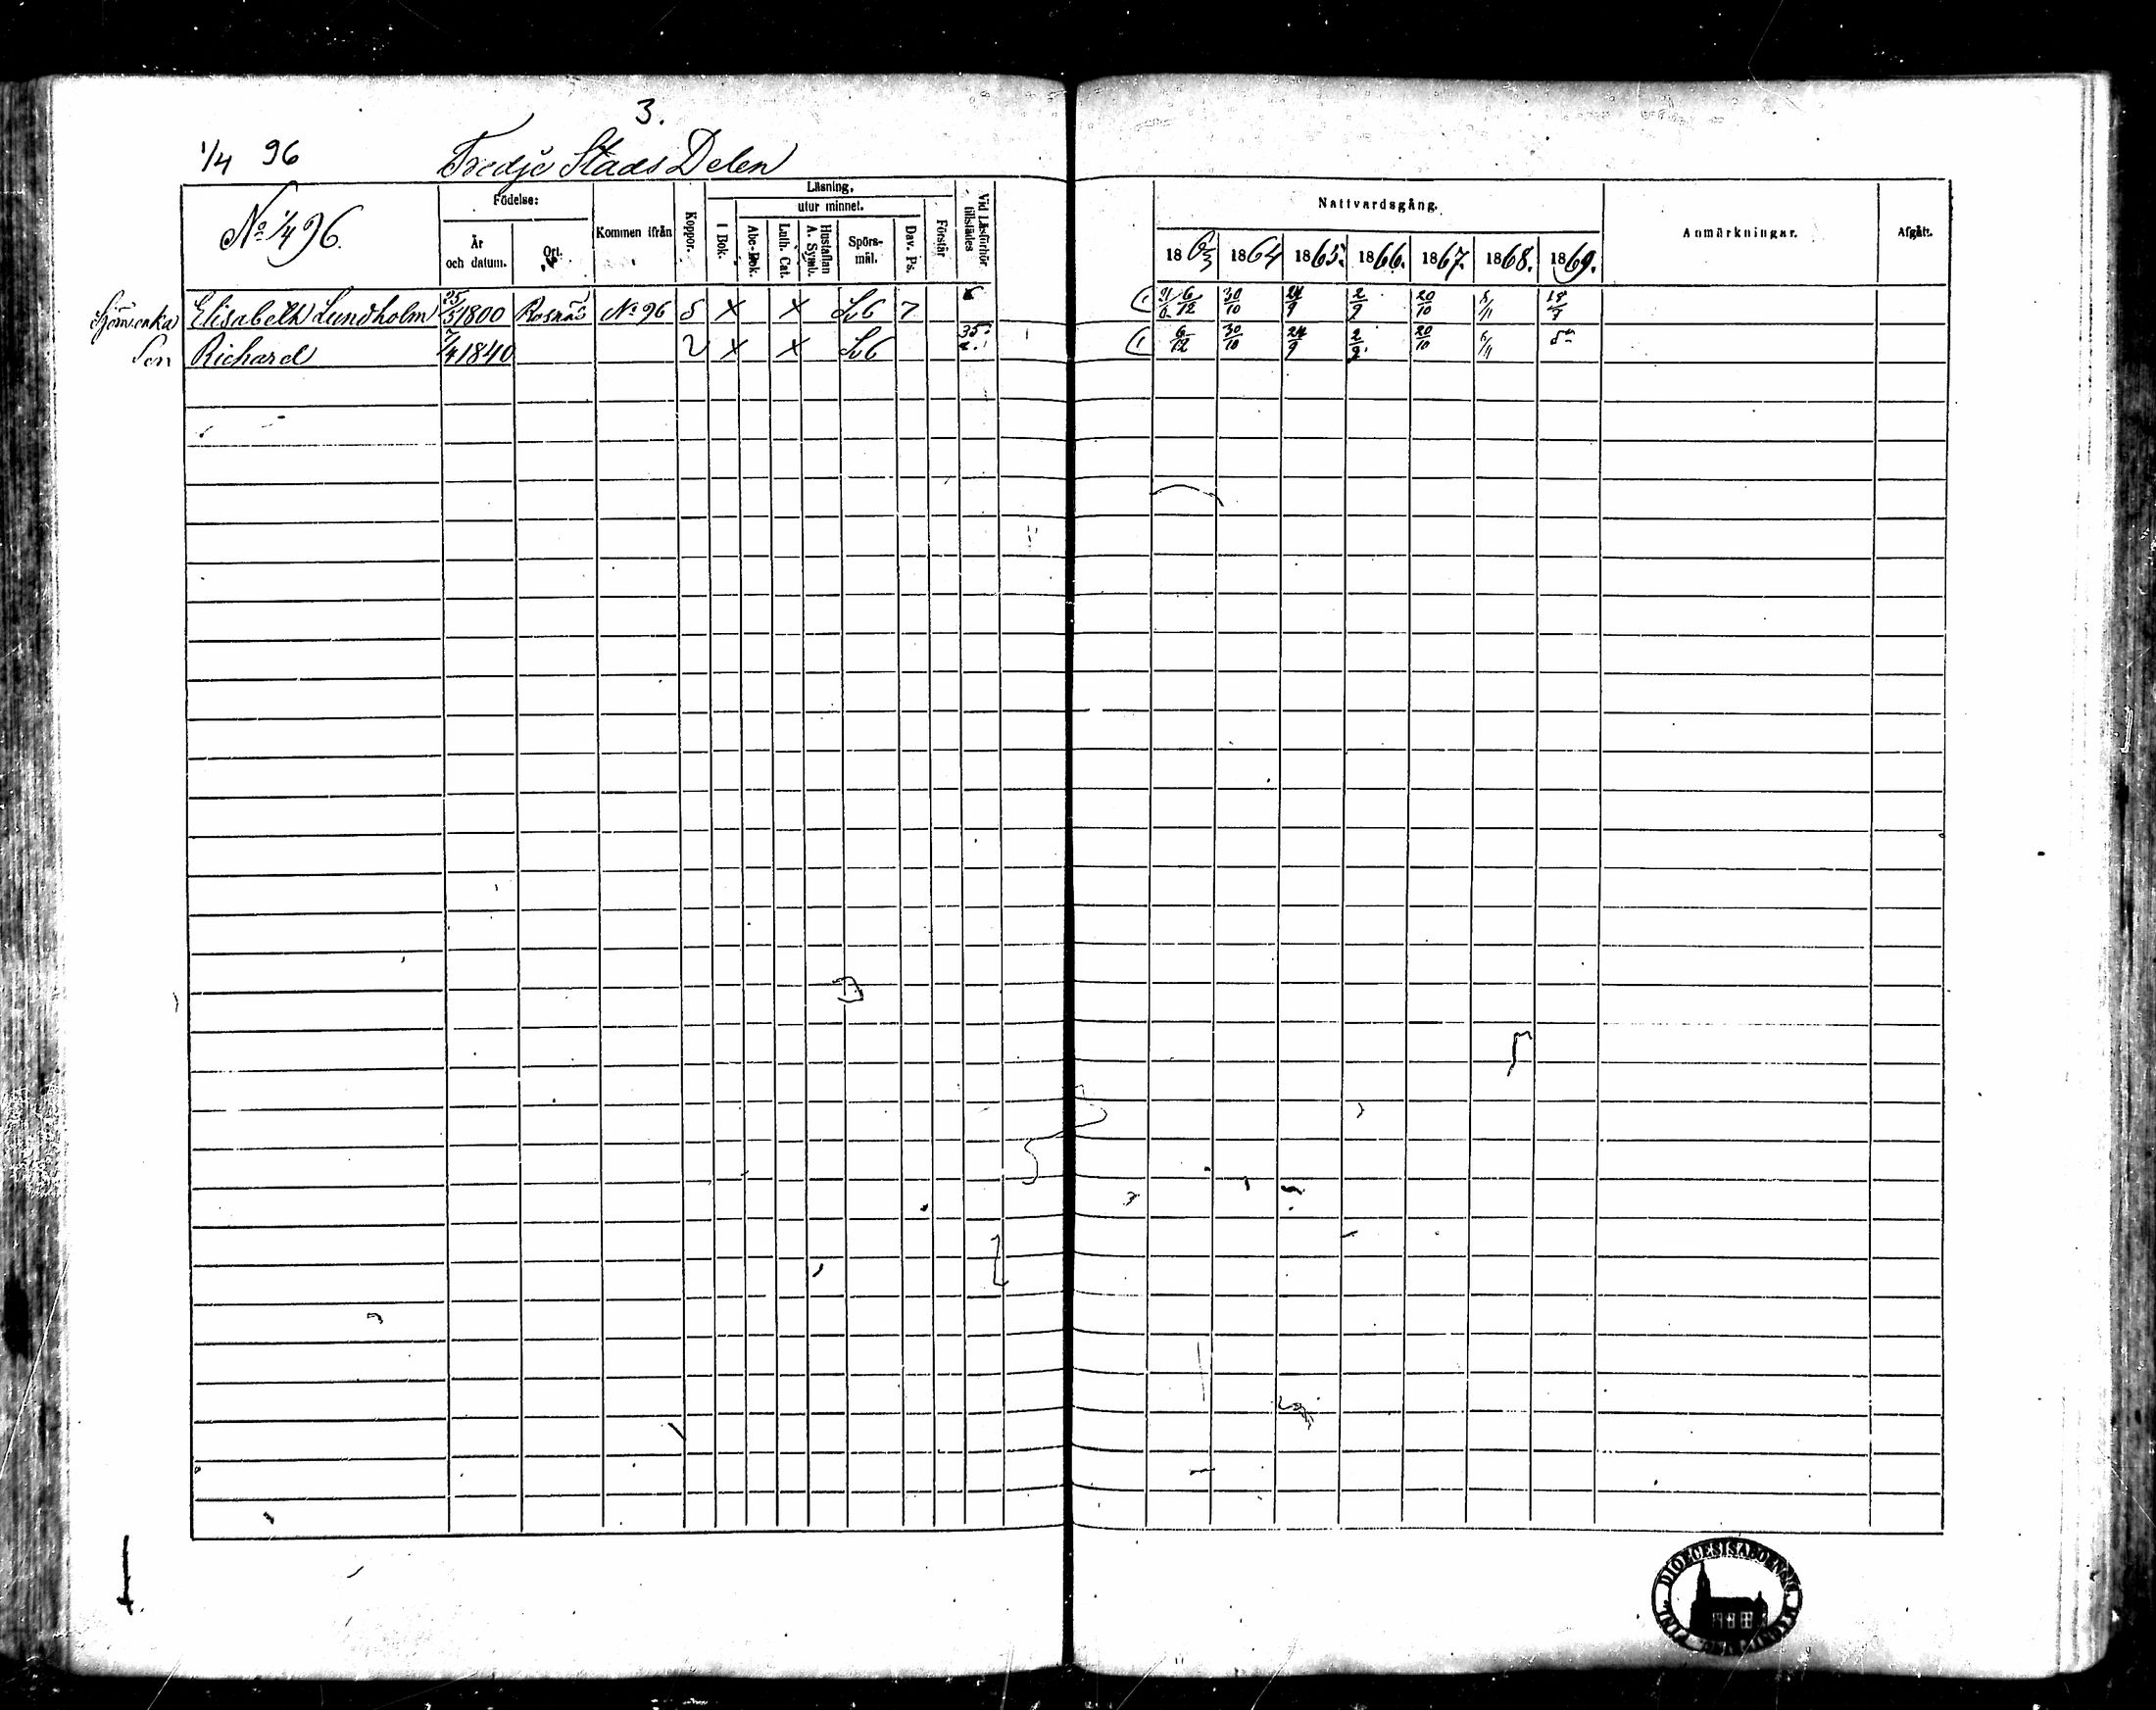 3.
1/4 96
Tredje Stads Delen
No 1/4 96.
Födelse:
År och datum.
Ort.
Kommen ifrån
Koppor.
Läsning.
I Bok.
utur minnet.
Abc-Bok.
Luth. Cat.
Hustaflan A. Symb.
Spörs-mål.
Dav. Ps.
Förstår
Vid Läsförhör tillstädes
Nattvardsgång.
1863 1864 1865. 1866. 1867. 1868. 1869.
Anmärkningar.
Afgått.
Elisabeth Lundholm 25/5 1800 No 96 5 x x 7 6/12 30/10 24/9 2/9 20/10
Son Richard 7/4 1840 2 x x 6/12 30/10 24/9 2/9 20/10